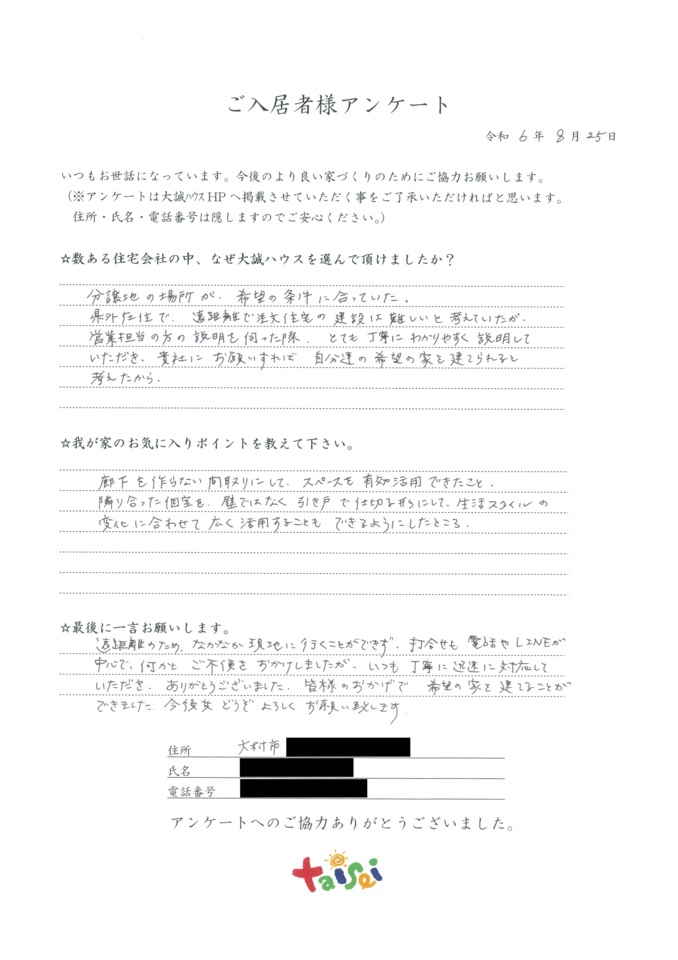 ご入居者様アンケート
令和 6 年 8 月 25 日
いつもお世話になっています。今後のより良い家づくりのためにご協力お願いします。
(※アンケートは大誠ハウスHPへ掲載させていただく事をご了承いただければと思います。
住所・氏名・電話番号は隠しますのでご安心ください。)
☆数ある住宅会社の中、なぜ大誠ハウスを選んで頂けましたか?
分譲地の場所が、希望の条件に合っていた。
県外在住で、遠距離で注文住宅の建設は難しいと考えていたが、
営業担当の方の説明を伺った際、とても丁寧にわかりやすく説明して
いただき、貴社にお願いすれば自分達の希望の家を建てられると
考えたから。
☆我が家のお気に入りポイントを教えて下さい。
廊下を作らない間取りにして、スペースを有効活用できたこと。
隣り合った個室を、壁ではなく引き戸で仕切る形にして、生活スタイルの
変化に合わせて広く活用することもできるようにしたところ。
☆最後に一言お願いします。
遠距離のため、なかなか現地に行くことができず、打合せも電話やLINEが
中心で、何かとご不便をおかけしましたが、いつも丁寧に迅速に対応して
いただき、ありがとうございました。皆様のおかげで希望の家を建てることが
できました。今後共どうぞよろしくお願い致します。
住所 大村市
氏名
電話番号
アンケートへのご協力ありがとうございました。
taisei